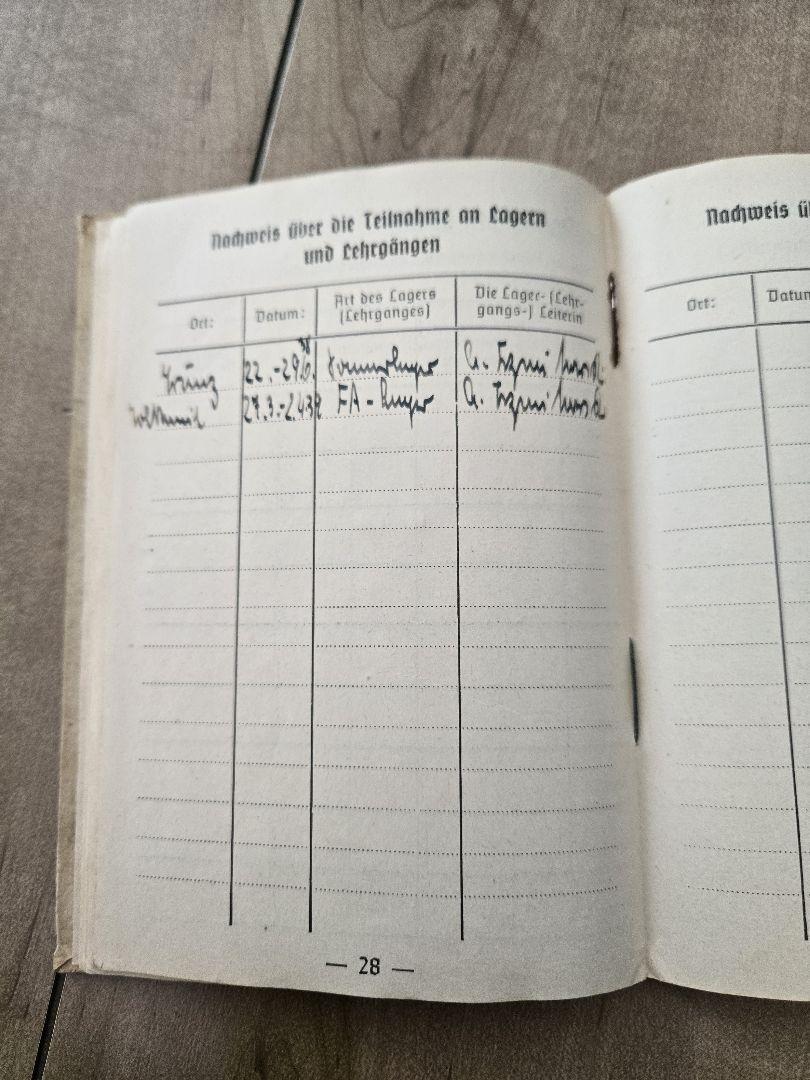 Nachweis über die Teilnahme an Lagern
und Lehrgängen
Ort:
Datum:
Art des Lagers
(Lehrganges)
Die Lager- (Lehr-
gangs-) Leiterin
22.-29.6.
38
Sommerlager
27.3.-2.4.39
FA - Lager
— 28 —
Nachweis ü
Ort:
Datum